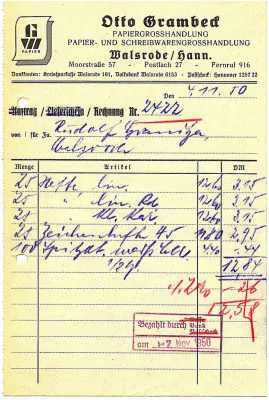 GW
PAPIER
Otto Grambeck
PAPIERGROSSHANDLUNG
PAPIER- UND SCHREIBWARENGROSSHANDLUNG
Walsrode / Hann.
Moorstraße 57 - Postfach 27 - Fernruf 916
Bankkonten: Kreissparkasse Walsrode 181, Volksbank Walsrode 6153 - Postscheck: Hannover 1257 22
Den 4. 11. 50
Auftrag / Lieferschein / Rechnung Nr. 2422
von / für Fa. Rudolf
Walsrode
Menge Artikel DM
25 Hefte lin. 12,60 3,15
25 " lin. Rd 12,60 3,15
25 " kl. kar 12,60 3,15
25 Zeichenhefte 45 11,80 2,95
100 Spitzt. weiß -44
12 84
% 2% - 26
12,58
Bezahlt durch Bank
am 7. Nov. 1950